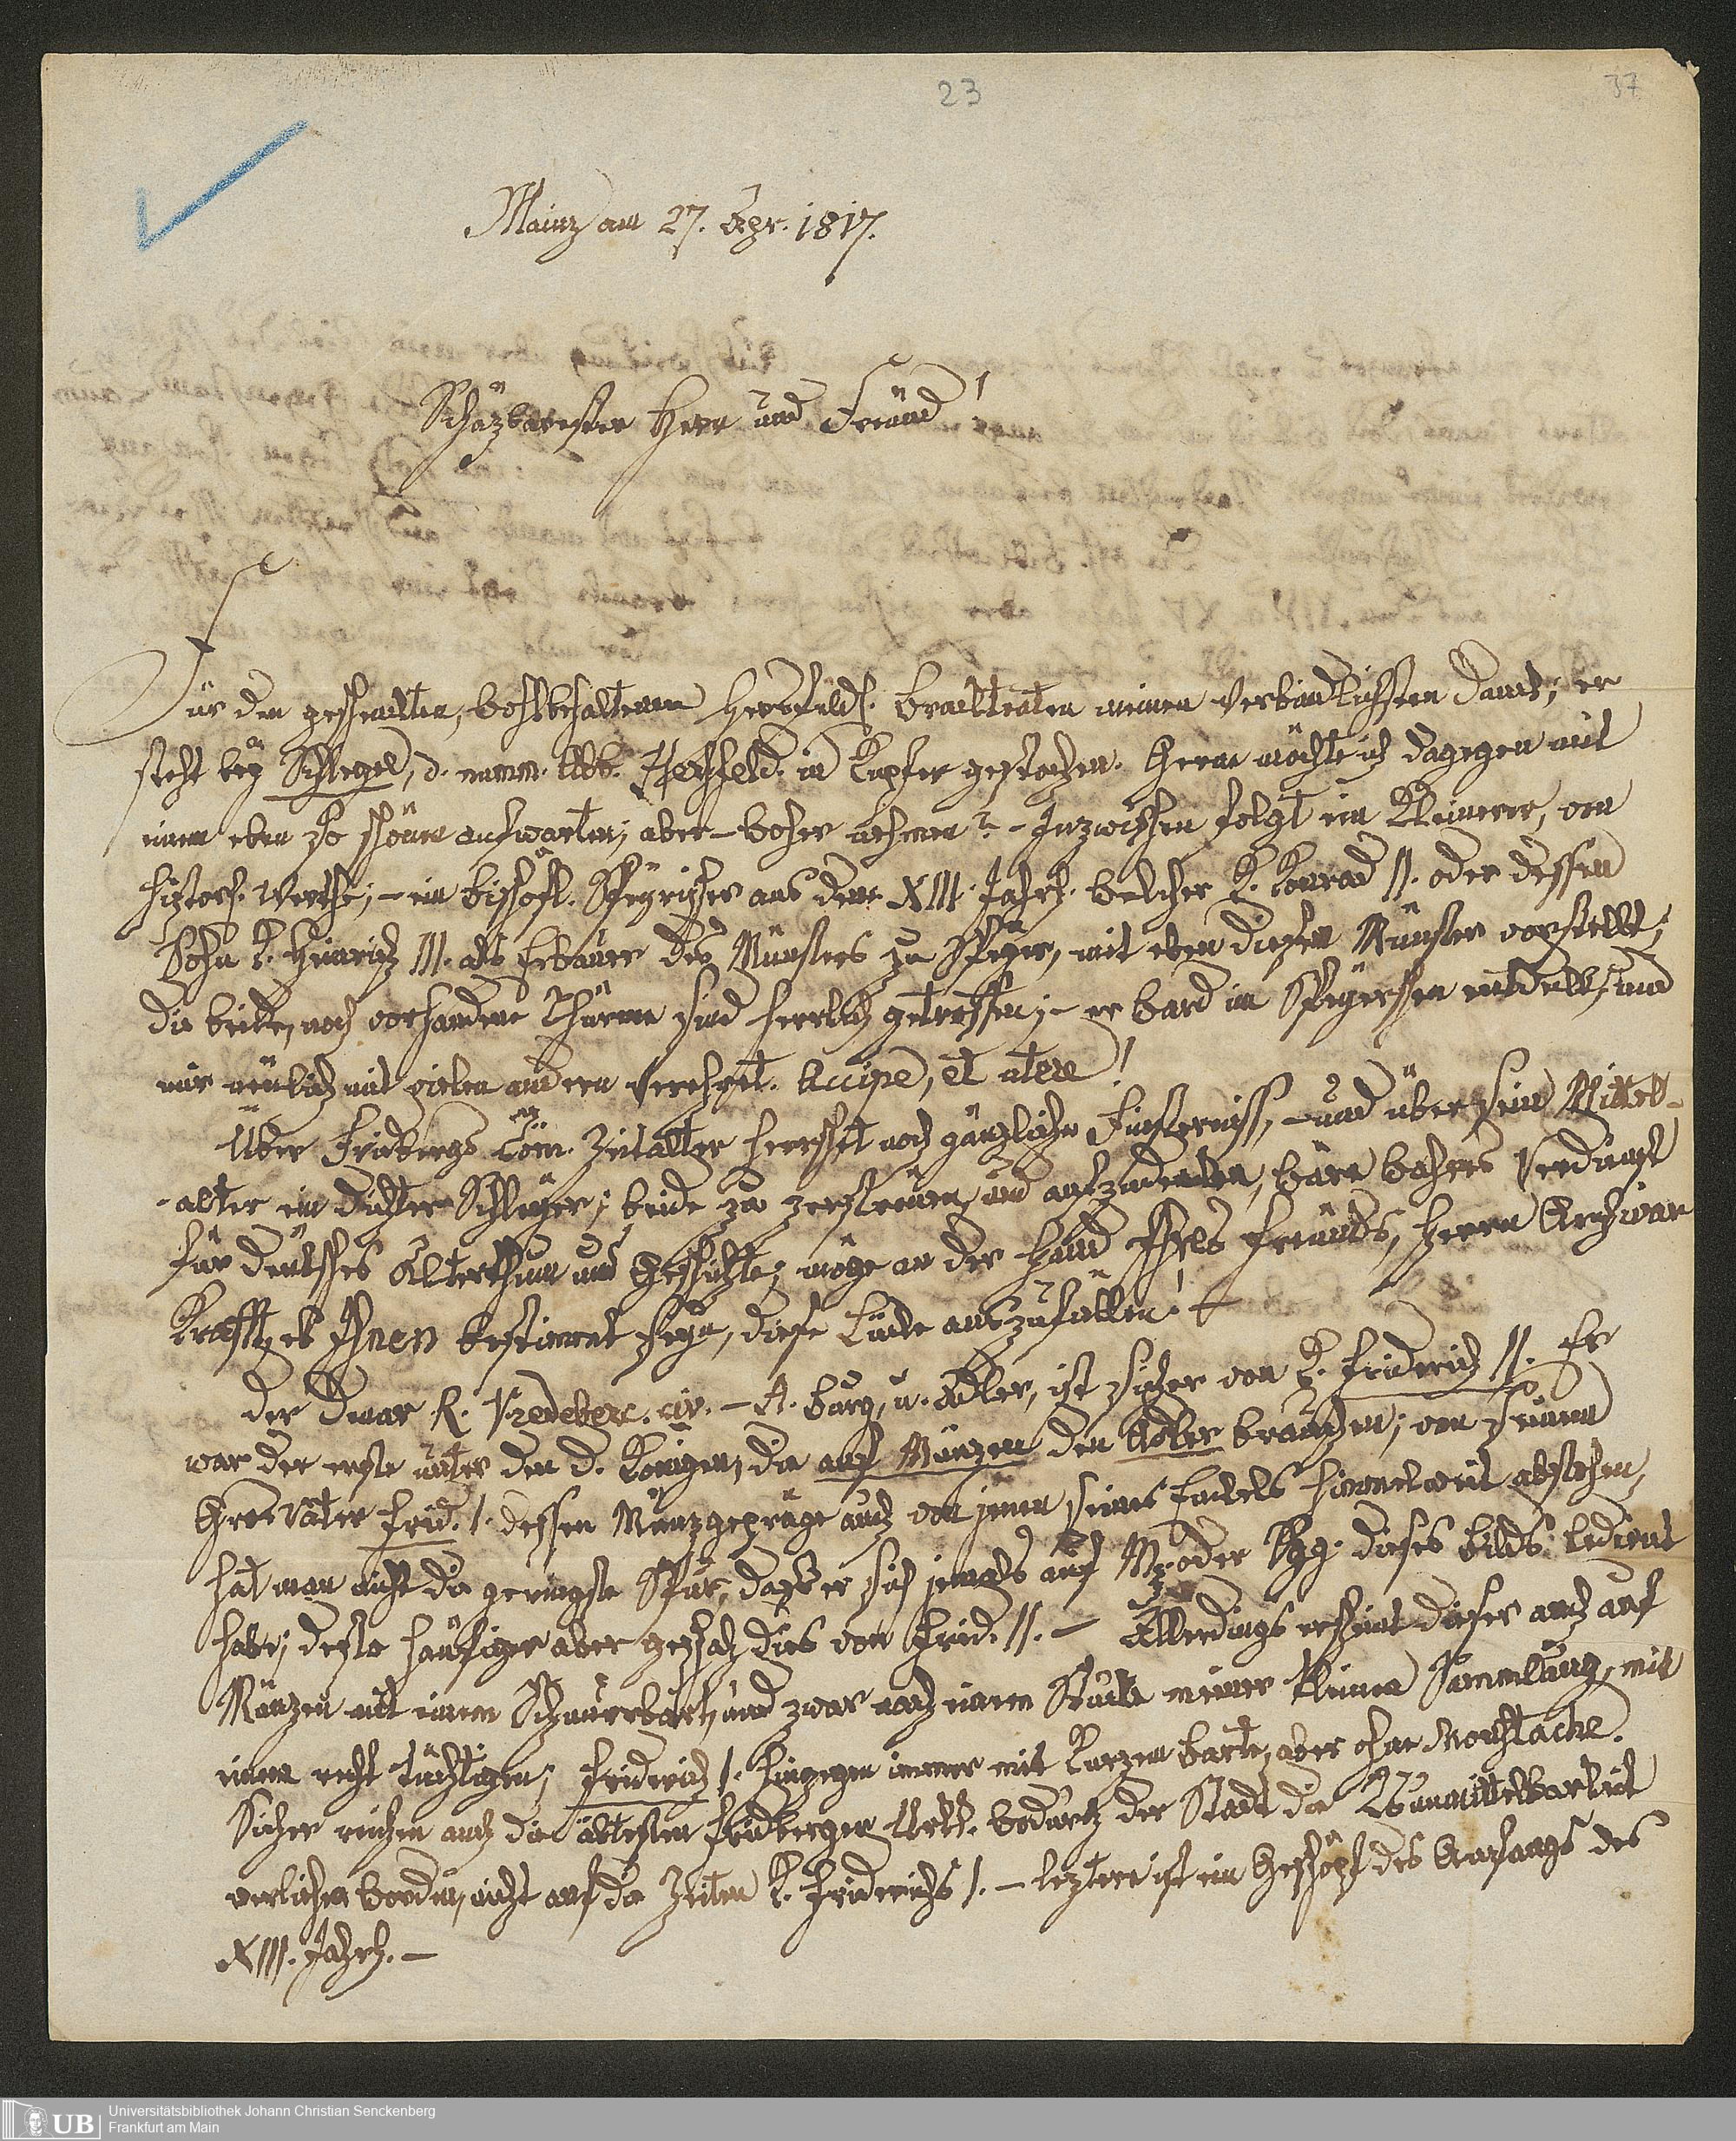 23
37
Mainz am 27. Apr. 1817.
Schäzbarester Herr und Freund!
Für den geschenkten, wohlbehaltenen Hersfeld. Bracteaten meinen verbindlichsten Dank; er
steht bey Schlegel, d. numm. Abb. Hersfeld. in Kupfer gestochen. Gerne möchte ich dagegen mit
einem eben so schönen aufwarten; aber – woher nehmen? – Inzwischen folgt ein Kleinerer, von
histor. Werthe; – ein bischöfl. Speyrischer aus dem XIII. Jahrh. welcher K. Konrad II. oder dessen
Sohn K. Heinrich III. als Erbauer des Münsters zu Speyer, mit eben diesem Münster vorstellt;
die beide, noch vorhandene Thürme sind herrlich getroffen; – er ward im Speyerschen entdeckt, und
mir neulich mit vielen andern verehret. Accipe, et utere!
Über Fridbergs Röm. Zeitalter herrschet noch gänzliche Finsterniss, – und über sein Mittel-
-alter ein dichter Schleyer; beide zu zerstreuen und aufzudecken, wäre wahres Verdienst
für deutsches Alterthum und Geschichte; möge an der Hand Ihres Freunds, Herrn Archivar
Krafft, es Ihnen bestimmt seyn, diese Lücke auszufüllen! –
Der Denar R. Vredeberc. civ. – A. Burg, u. Adler, ist sicher von K. Friderich II. Er
war der erste unter den d. Königen, die auf Münzen den Adler brauchen; von seinem
GrosVater Frid. I. dessen Münzgepräge auch von jenem seines Enkels himmelweit abstehen,
hat man nicht die geringste Spur, dass er sich jemals auf M. oder Sgg. dieses Bilds bedient
habe; desto häufiger aber geschah dies von Frid. II. – Allerdings erscheint dieser auch auf
Münzen mit einem Schnurrbart, und zwar nach einem Stücke meiner kleinen Sammlung, mit
einem recht tüchtigen; Friderich I. hingegen immer mit kurzem Barte, aber ohne Moustache.
Sicher reichen auch die ältesten Fridberger Urkk. wodurch der Stadt die RsUnmittelbarkeit
verliehen worden, nicht auf die Zeiten K. Friderichs I. – leztere ist ein Geschöpf des Anfangs des
XIII. Jahrh. –
UB
Universitätsbibliothek Johann Christian Senckenberg
Frankfurt am Main